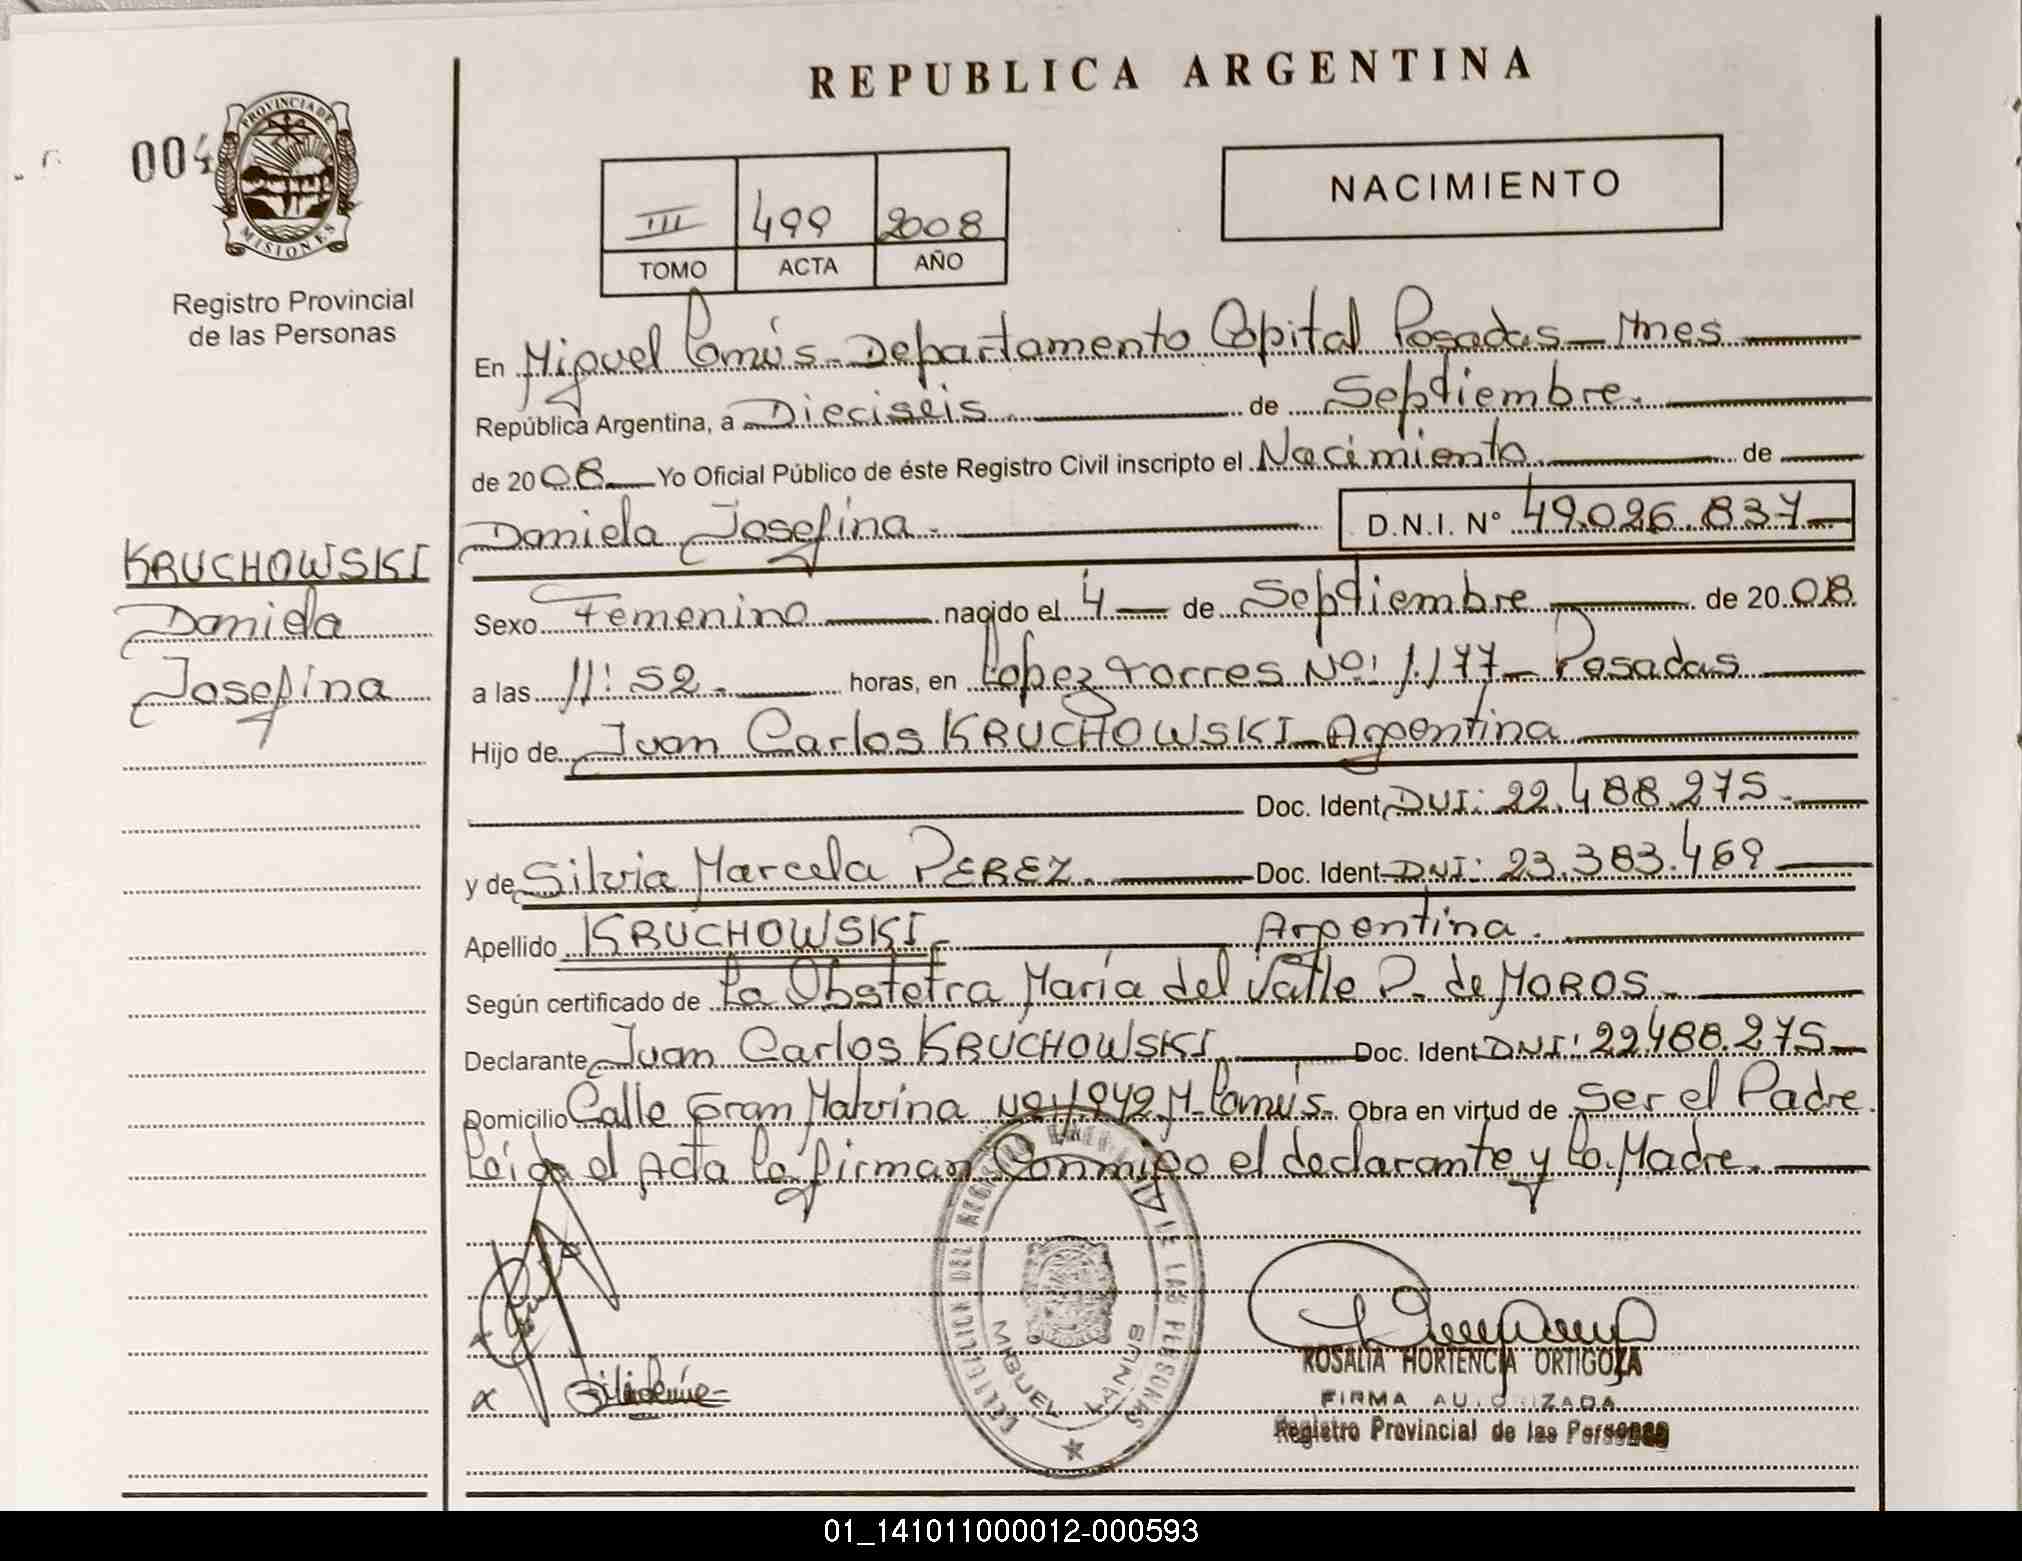 REPUBLICA ARGENTINA
004
PROVINCIA DE
MISIONES
Registro Provincial
de las Personas
III 499 2008
TOMO ACTA AÑO
NACIMIENTO
En Miguel Lanús - Departamento Capital Posadas - Mnes
República Argentina, a Dieciseis de Septiembre.
de 2008 Yo Oficial Público de éste Registro Civil inscripto el Nacimiento de
Daniela Josefina. D.N.I. N° 49.026.837
KRUCHOWSKI
Daniela
Josefina
Sexo Femenino nacido el 4 de Septiembre de 2008
a las 11:52. horas, en Lopez Torres No: 1.177 - Posadas
Hijo de Juan Carlos KRUCHOWSKI - Argentina
Doc. Ident. DNI: 22.488.275.
y de Silvia Marcela PEREZ. Doc. Ident. DNI: 23.383.469
Apellido KRUCHOWSKI Argentina.
Según certificado de La Obstetra María del Valle P. de MOROS.
Declarante Juan Carlos KRUCHOWSKI Doc. Ident DNI: 22488.275
Domicilio Calle Gran Malvina Nº 1942 M. Lanús. Obra en virtud de Ser el Padre.
Leída el Acta la firman Conmigo el declarante y la Madre.
DEL REGISTRO DE LAS PERSONAS
MIGUEL LANUS
ROSALIA HORTENCIA ORTIGOZA
FIRMA AUTORIZADA
Registro Provincial de las Personas
01_141011000012-000593